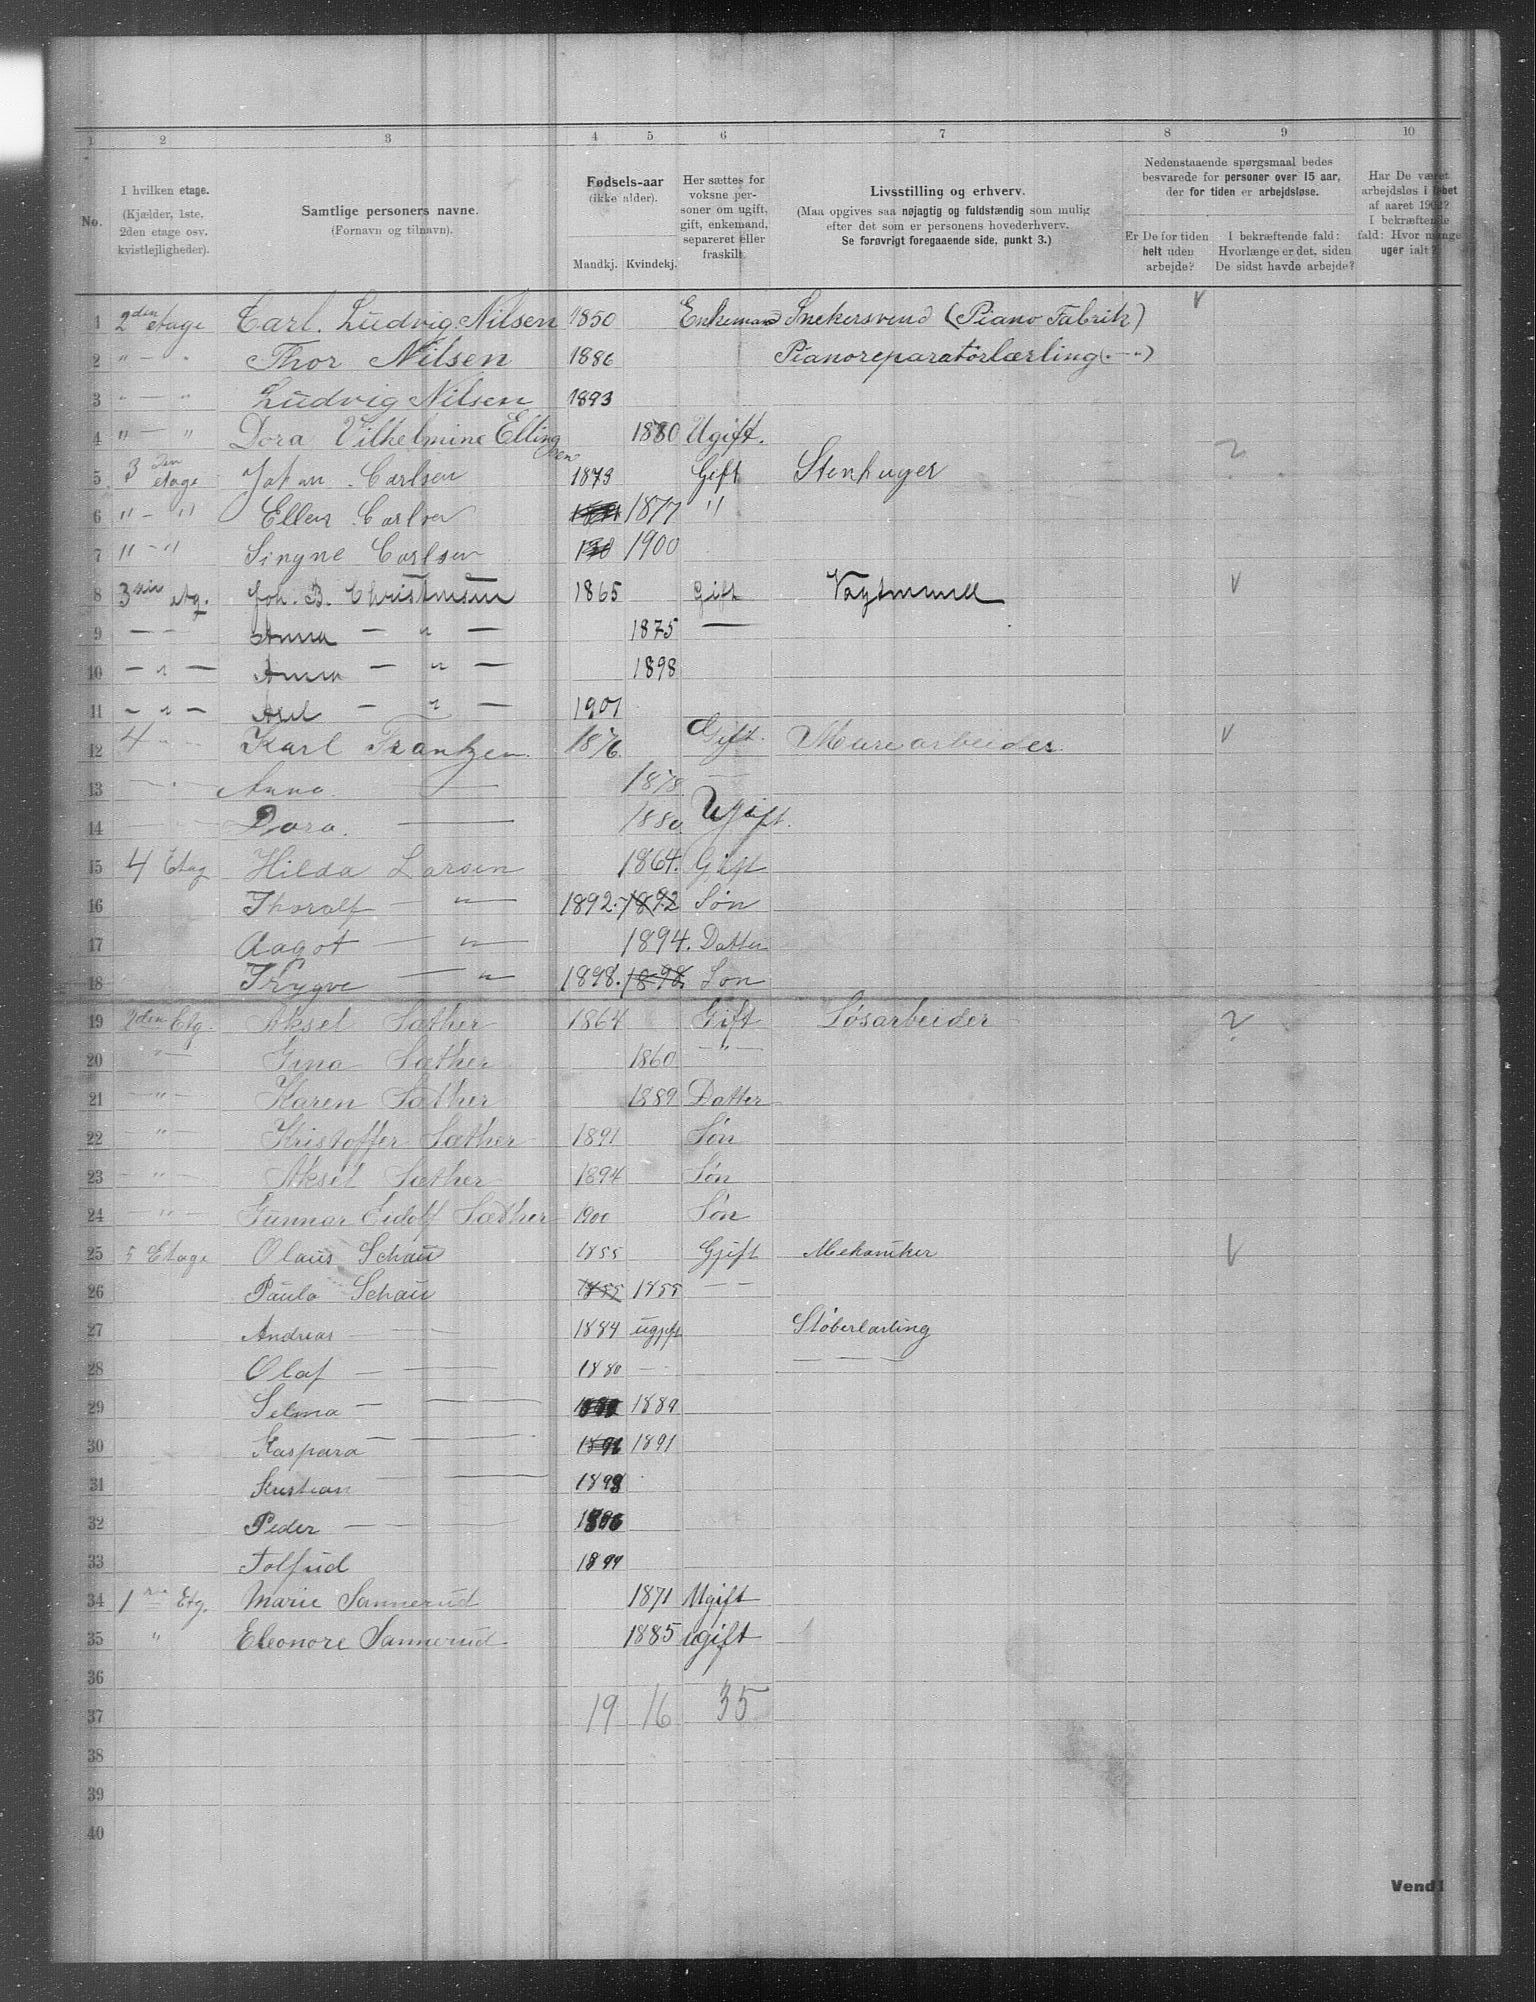 1 2 3 4 5 6 7 8 9 10
No.
I hvilken etage.
(Kjælder, 1ste.
2den etage osv.
kvistlejligheder).
Samtlige personers navne.
(Fornavn og tilnavn).
Fødsels-aar
(ikke alder).
Mandkj. Kvindekj.
Her sættes for
voksne per-
soner om ugift,
gift, enkemand,
separeret eller
fraskilt.
Livsstilling og erhverv.
(Maa opgives saa nøjagtig og fuldstændig som mulig
efter det som er personens hovederhverv.
Se forøvrigt foregaaende side, punkt 3.)
Nedenstaaende spørgsmaal bedes
besvarede for personer over 15 aar,
der for tiden er arbejdsløse.
Er De for tiden
helt uden
arbejde?
I bekræftende fald:
Hvorlænge er det, siden
De sidst havde arbejde?
Har De været
arbejdsløs i løbet
af aaret 1902?
I bekræftende
fald: Hvor mange
uger ialt?
1 2den etage Carl. Ludvig Nilsen 1850 Enkemand Snekersvend (Piano Fabrik) v
2 " — " Thor Nilsen 1886 Pianoreparatørlærling (" — ")
3 " — " Ludvig Nilsen 1893
4 " — " Dora Vilhelmine Ellingsen 1880 Ugift.
5 3den etage Johan Carlsen 1873 Gift Stenhuger ?
6 " — " Ellen Carlsen 1877 "
7 " — " Singne Carlsen 1900
8 3die etg. Joh. B. Christensen 1865 Gift Vagtmand v
9 — — Anna — " — 1875 —
10 — " — Anna — " — 1898
11 — " — Axel — " — 1901
12 4 " — Karl Frantzen. 1876. Gift. Murearbeider v
13 — " — Anna. — 1878 —
14 — Dora. — 1880 Ugift.
15 4 Etag Hilda Larsen 1864. Gift
16 Thoralf — " — 1892. 1892 Søn
17 Aagot — " — 1894. Datter
18 Trygve — " 1898. 1898. Søn
19 2den Etg. Aksel Sæther 1864 Gift Løsarbeider ?
20 " — Gina Sæther 1860 — " —
21 — " — Karen Sæther 1889 Datter
22 — " — Kristoffer Sæther 1891 Søn
23 — " — Aksel Sæther 1894 Søn
24 — " — Gunnar Eidolf Sæther 1900 Søn
25 5 Etage Olaus Schau 1855 Gjift Mekaniker v
26 Paula Schau 1855 1855 — —
27 Andreas — 1884 ugjift Støberlærling
28 Olaf — 1880 — —
29 Selma — 1889
30 Kaspara — 1891 1891
31 Kristian — 1893
32 Peder —
33 Tolfud 1899
34 1re Etg. Marie Sannerud 1871 Ugift
35 " Eleonore Sannerud 1885 ugift
36
37 19 16 35
38
39
40
Vend!